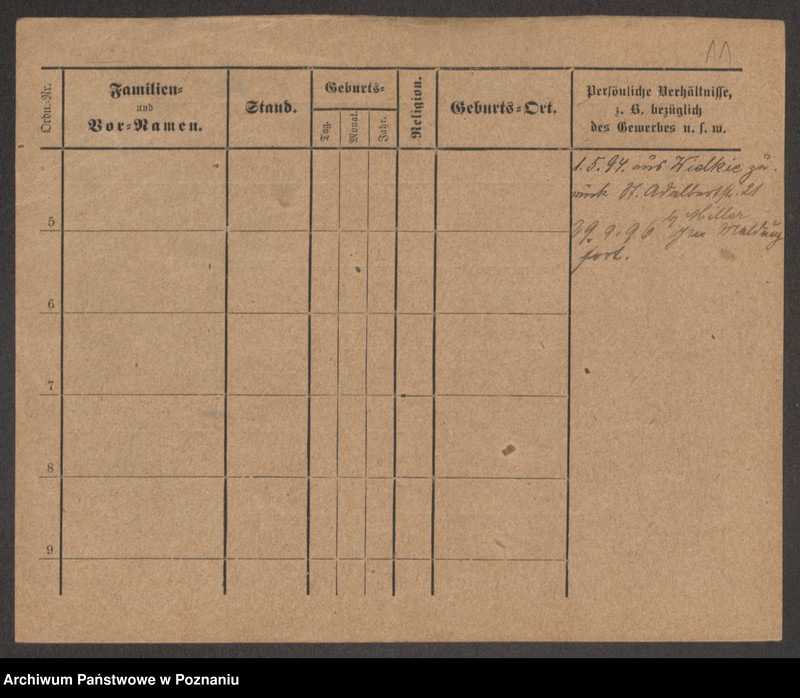 11
Ordn.-Nr.
Familien-
und
Vor-Namen.
Stand.
Geburts-
Tag.
Monat.
Jahr.
Religion.
Geburts-Ort.
Persönliche Verhältnisse,
z. B. bezüglich
des Gewerbes u. s. w.
1.5.94. aus Wielkie zu-
rück St. Adalbertstr. 21
b/ Hiller
29.9.96 ohne Meldung
fort.
5
6
7
8
9
Archiwum Państwowe w Poznaniu